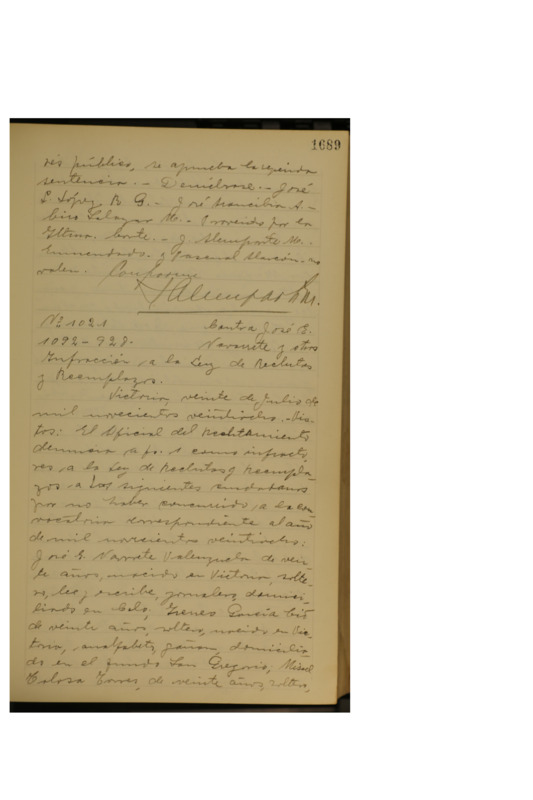 1689
rés público, se aprueba la referida
sentencia. - Devuélvase. - José
L. López R. G. - José Arancibia A. -
Ciro Salazar M. - Proveído por la
Iltma. Corte. - J. Alemparte M. -
Enmendado. y Pascual Alarcón - no
valen. Conforme
J Alemparte M.
Nº 1021
1092 - 928.
Contra José E.
Navarrete y otros
Infracción a la Ley de Reclutas
y Reemplazos.
Victoria, veinte de Julio de
mil novecientos veintiocho. Vis-
tos: El Oficial del Reclutamiento
denuncia a fs. 1 como infracto-
res a la Ley de Reclutas y Reempla-
zos a los siguientes ciudadanos
por no haber concurrido a la con-
vocatoria correspondiente al año
de mil novecientos veintiocho:
José E. Navarrete Valenzuela de vein-
te años, nacido en Victoria, solte-
ro, lee y escribe, jornalero, domici-
liado en ; Ireneo García
de veinte años, soltero, nacido en Vic-
toria, analfabeto, gañán, domicilia-
do en el fundo San Gregorio; Misael
Tolosa Torres, de veinte años, soltero,